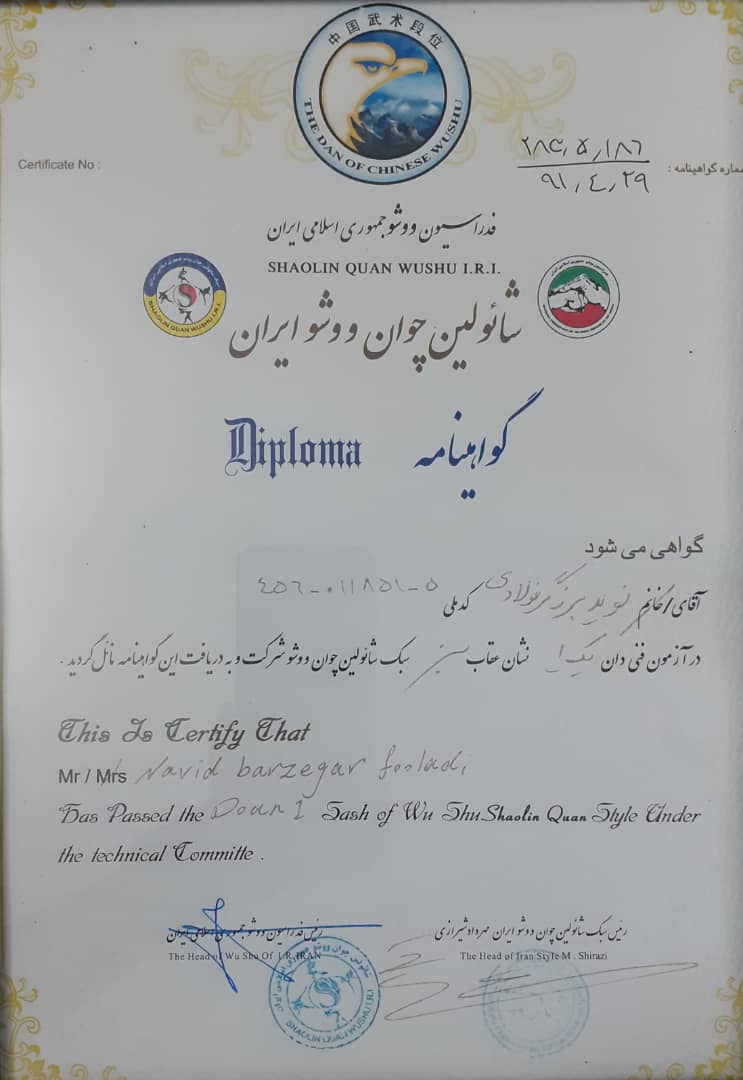 中国武术段位
THE DAN OF CHINESE WUSHU
Certificate No :
شماره گواهینامه :
۲۸۴,۵,۱۸۶
۹۱,۴,۲۹
فدراسیون ووشو جمهوری اسلامی ایران
SHAOLIN QUAN WUSHU I.R.I.
SHAOLIN QUAN WUSHU I.R.I.
شائولین چوان ووشو ایران
Diploma گواهینامه
گواهی می شود
آقای/خانم نوید برزگر فولادی کدملی ۴۵۶-۰۱۱۸۵۱-۵
در آزمون فنی دان یک ۱ نشان عقاب سبز سبک شائولین چوان ووشو شرکت و به دریافت این گواهینامه نائل گردید .
This Is Certify That
Mr / Mrs Navid barzegar fooladi
Has Passed the Doan 1 Sash of Wu Shu Shaolin Quan Style Under
the technical Committe .
رئیس سبک شائولین چوان ووشو ایران مهرداد شیرازی
رئیس فدراسیون ووشو جمهوری اسلامی ایران
The Head of Wu Shu Of I.R.IRAN
The Head of Iran Style M . Shirazi
SHAOLIN QUAN WUSHU I.R.I